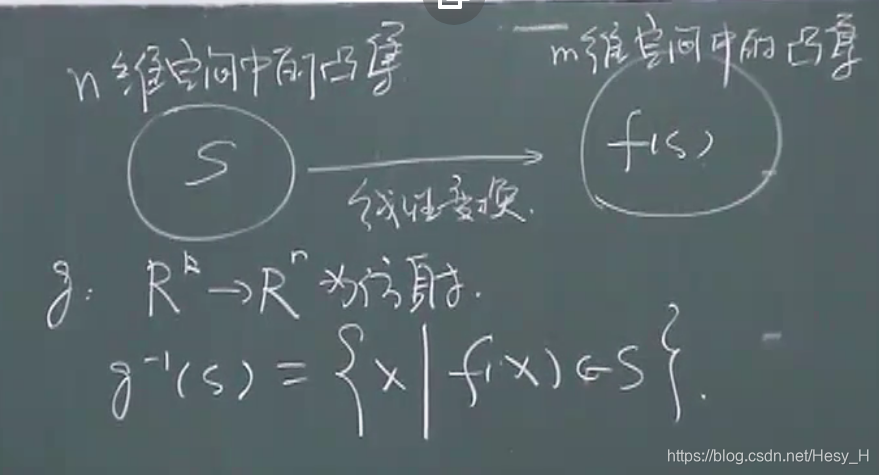 n维空间中的凸集
m维空间中的凸集
S
f(s)
线性变换.
g: R^k → R^n 为仿射.
g⁻¹(s) = {x | f(x) ∈ S}.
https://blog.csdn.net/Hesy_H